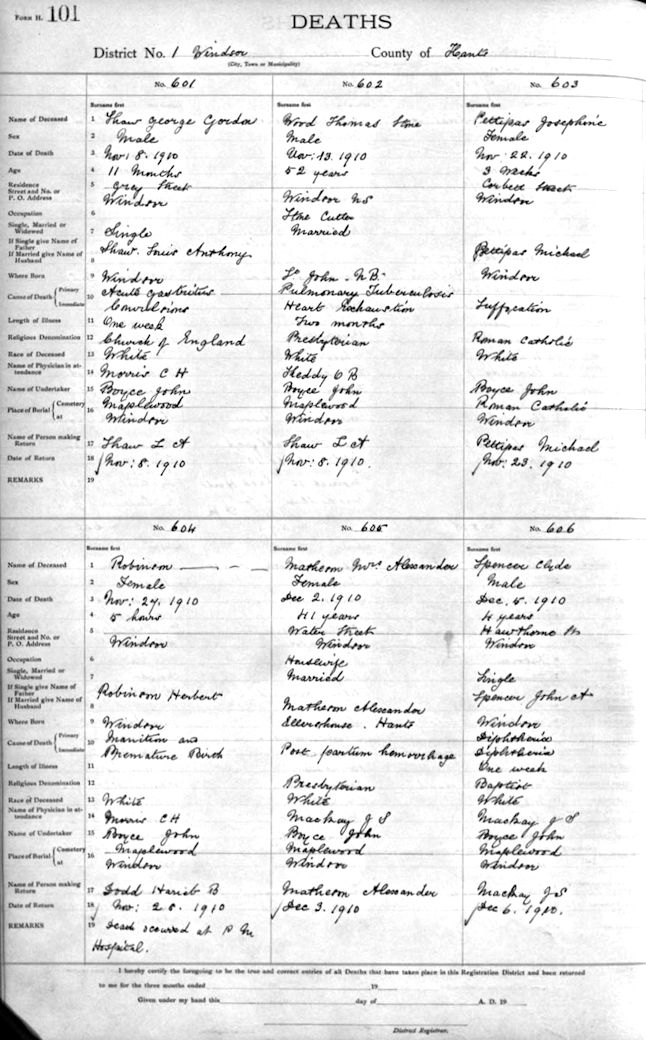 FORM H. 101
DEATHS
District No. 1 Windsor County of Hants
(City, Town or Municipality)
No. 601 No. 602 No. 603
Surname first Surname first Surname first
Name of Deceased 1 Shaw George Gordon Wood Thomas Stone Pettipas Josephine
Sex 2 Male Male Female
Date of Death 3 Nov: 8. 1910 Nov: 13. 1910 Nov. 22. 1910
Age 4 11 Months 52 years 3 Weeks
Residence Street and No. or P. O. Address 5 Grey Street Corbett Street
Windsor Windsor NS Windsor
Occupation 6 Stone Cutter
Single, Married or Widowed 7 Single Married
If Single give Name of Father
If Married give Name of Husband 8 Shaw. Louis Anthony Pettipas Michael
Where Born 9 Windsor St John - N.B. Windsor
Cause of Death { Primary 10 Acute Gastritus Pulmonary Tuberculosis
Immediate Convulsions Heart Exhaustion Suffocation
Length of Illness 11 One week Two months
Religious Denomination 12 Church of England Presbyterian Roman Catholic
Race of Deceased 13 White White White
Name of Physician in attendance 14 Morris C H Reddy O B
Name of Undertaker 15 Boyce John Boyce John Boyce John
Place of Burial { Cemetery 16 Maplewood Maplewood Roman Catholic
at Windsor Windsor Windsor
Name of Person making Return 17 Shaw L A Shaw L A Pettipas Michael
Date of Return 18 Nov: 8. 1910 Nov: 8. 1910. Nov: 23. 1910
REMARKS 19
No. 604 No. 605 No. 606
Surname first Surname first Surname first
Name of Deceased 1 Robinson — - - Matheson Mrs Alexander Spencer Clyde
Sex 2 Female Female Male
Date of Death 3 Nov: 27, 1910 Dec 2. 1910 Dec. 5. 1910
Age 4 5 hours 41 years 4 years
Residence Street and No. or P. O. Address 5 Water Street Hawthorne St
Windsor Windsor Windsor
Occupation 6 Housewife
Single, Married or Widowed 7 Married Single
If Single give Name of Father
If Married give Name of Husband 8 Robinson Herbert Matheson Alexander Spencer John A
Where Born 9 Windsor Ellershouse. Hants Windsor
Cause of Death { Primary 10 Diphtheria
Immediate Premature Birth Post partum hemorrhage Diphtheria
Length of Illness 11 One week
Religious Denomination 12 Presbyterian Baptist
Race of Deceased 13 White White White
Name of Physician in attendance 14 Morris C H Mackay J S Mackay J S
Name of Undertaker 15 Boyce John Boyce John Boyce John
Place of Burial { Cemetery 16 Maplewood Maplewood Maplewood
at Windsor Windsor Windsor
Name of Person making Return 17 Dodd B Matheson Alexander Mackay J S
Date of Return 18 Nov: 28. 1910 Dec 3. 1910 Dec 6. 1910.
REMARKS 19 Death occured at P M
Hospital.
I hereby certify the foregoing to be the true and correct entries of all Deaths that have taken place in this Registration District and been returned
to me for the three months ended 19
Given under my hand this day of A. D. 19
District Registrar.